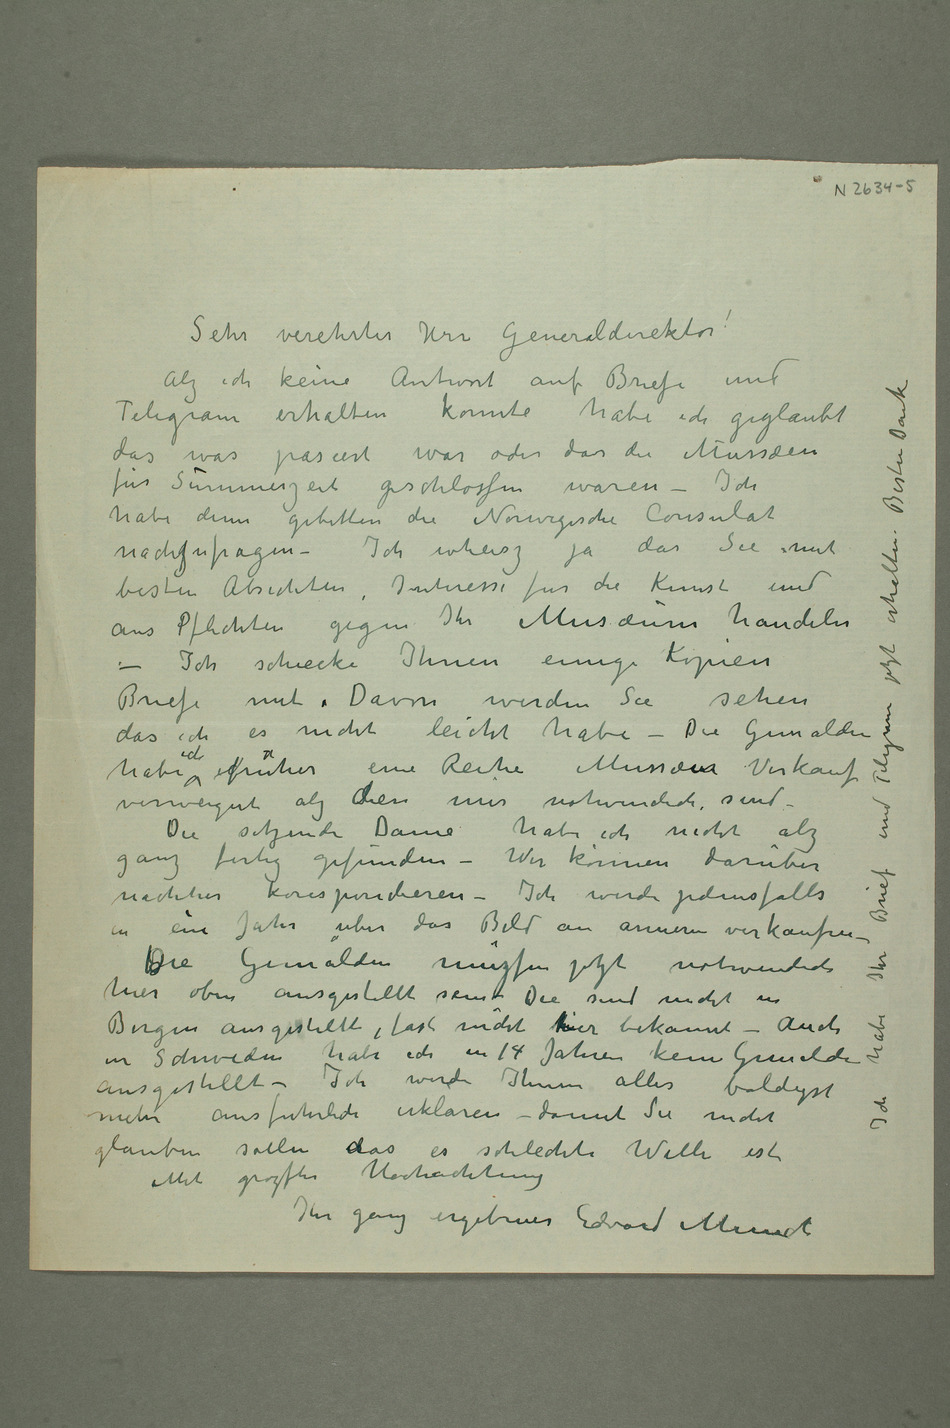 N 2634-5
Sehr verehrter Herr Generaldirektor!
Alz ich keine Antwort auf Briefe und
Telegram erhalten konnte habe ich geglaubt
das was pasiert war oder das die Mussæen
für Summerzeit geschlossen waren – Ich
habe denn gebetten die Norwegische Consulat
nachzufragen – Ich wheisz ja das Sie mit
besten Absichten, Interesse für die Kunst und
aus Pflichten gegen Ihr Musæum handeln
– Ich schiecke Ihnen einige Kopien
Briefe mit. Davon werden Sie sehen
das ich es nicht leicht habe – Die Gemälden
habe ich früher eine Reihe Mussæer Verkauf
verweigert alz dien mir notwendich sind –
Die sitzende Dame habe ich nicht alz
ganz fertig gefunden – Wir können darüber
nachher korespondieren – Ich werde jedensfalls
in ein Jahr über das Bild an anneren verkaufen –
Die Gemälden müszsen jetzt notwendich
hier oben ausgestellt sein – Die sind nicht in
Bergen ausgestellt, fast nicht hier bekannt – Auch
in Schweden habe ich in 14 Jahren kein Gemälde
ausgestellt – Ich werde Ihnen alles baldigst
mehr ausfuhrlich erklären – damit Sie nicht
glauben sollen das es schlechte Wille ist
Mit grozster Hochachtung
Ihr ganz ergebener Edvard Munch
Ich habe Ihr Brief und Telegram jetzt erhalten. Besten Dank